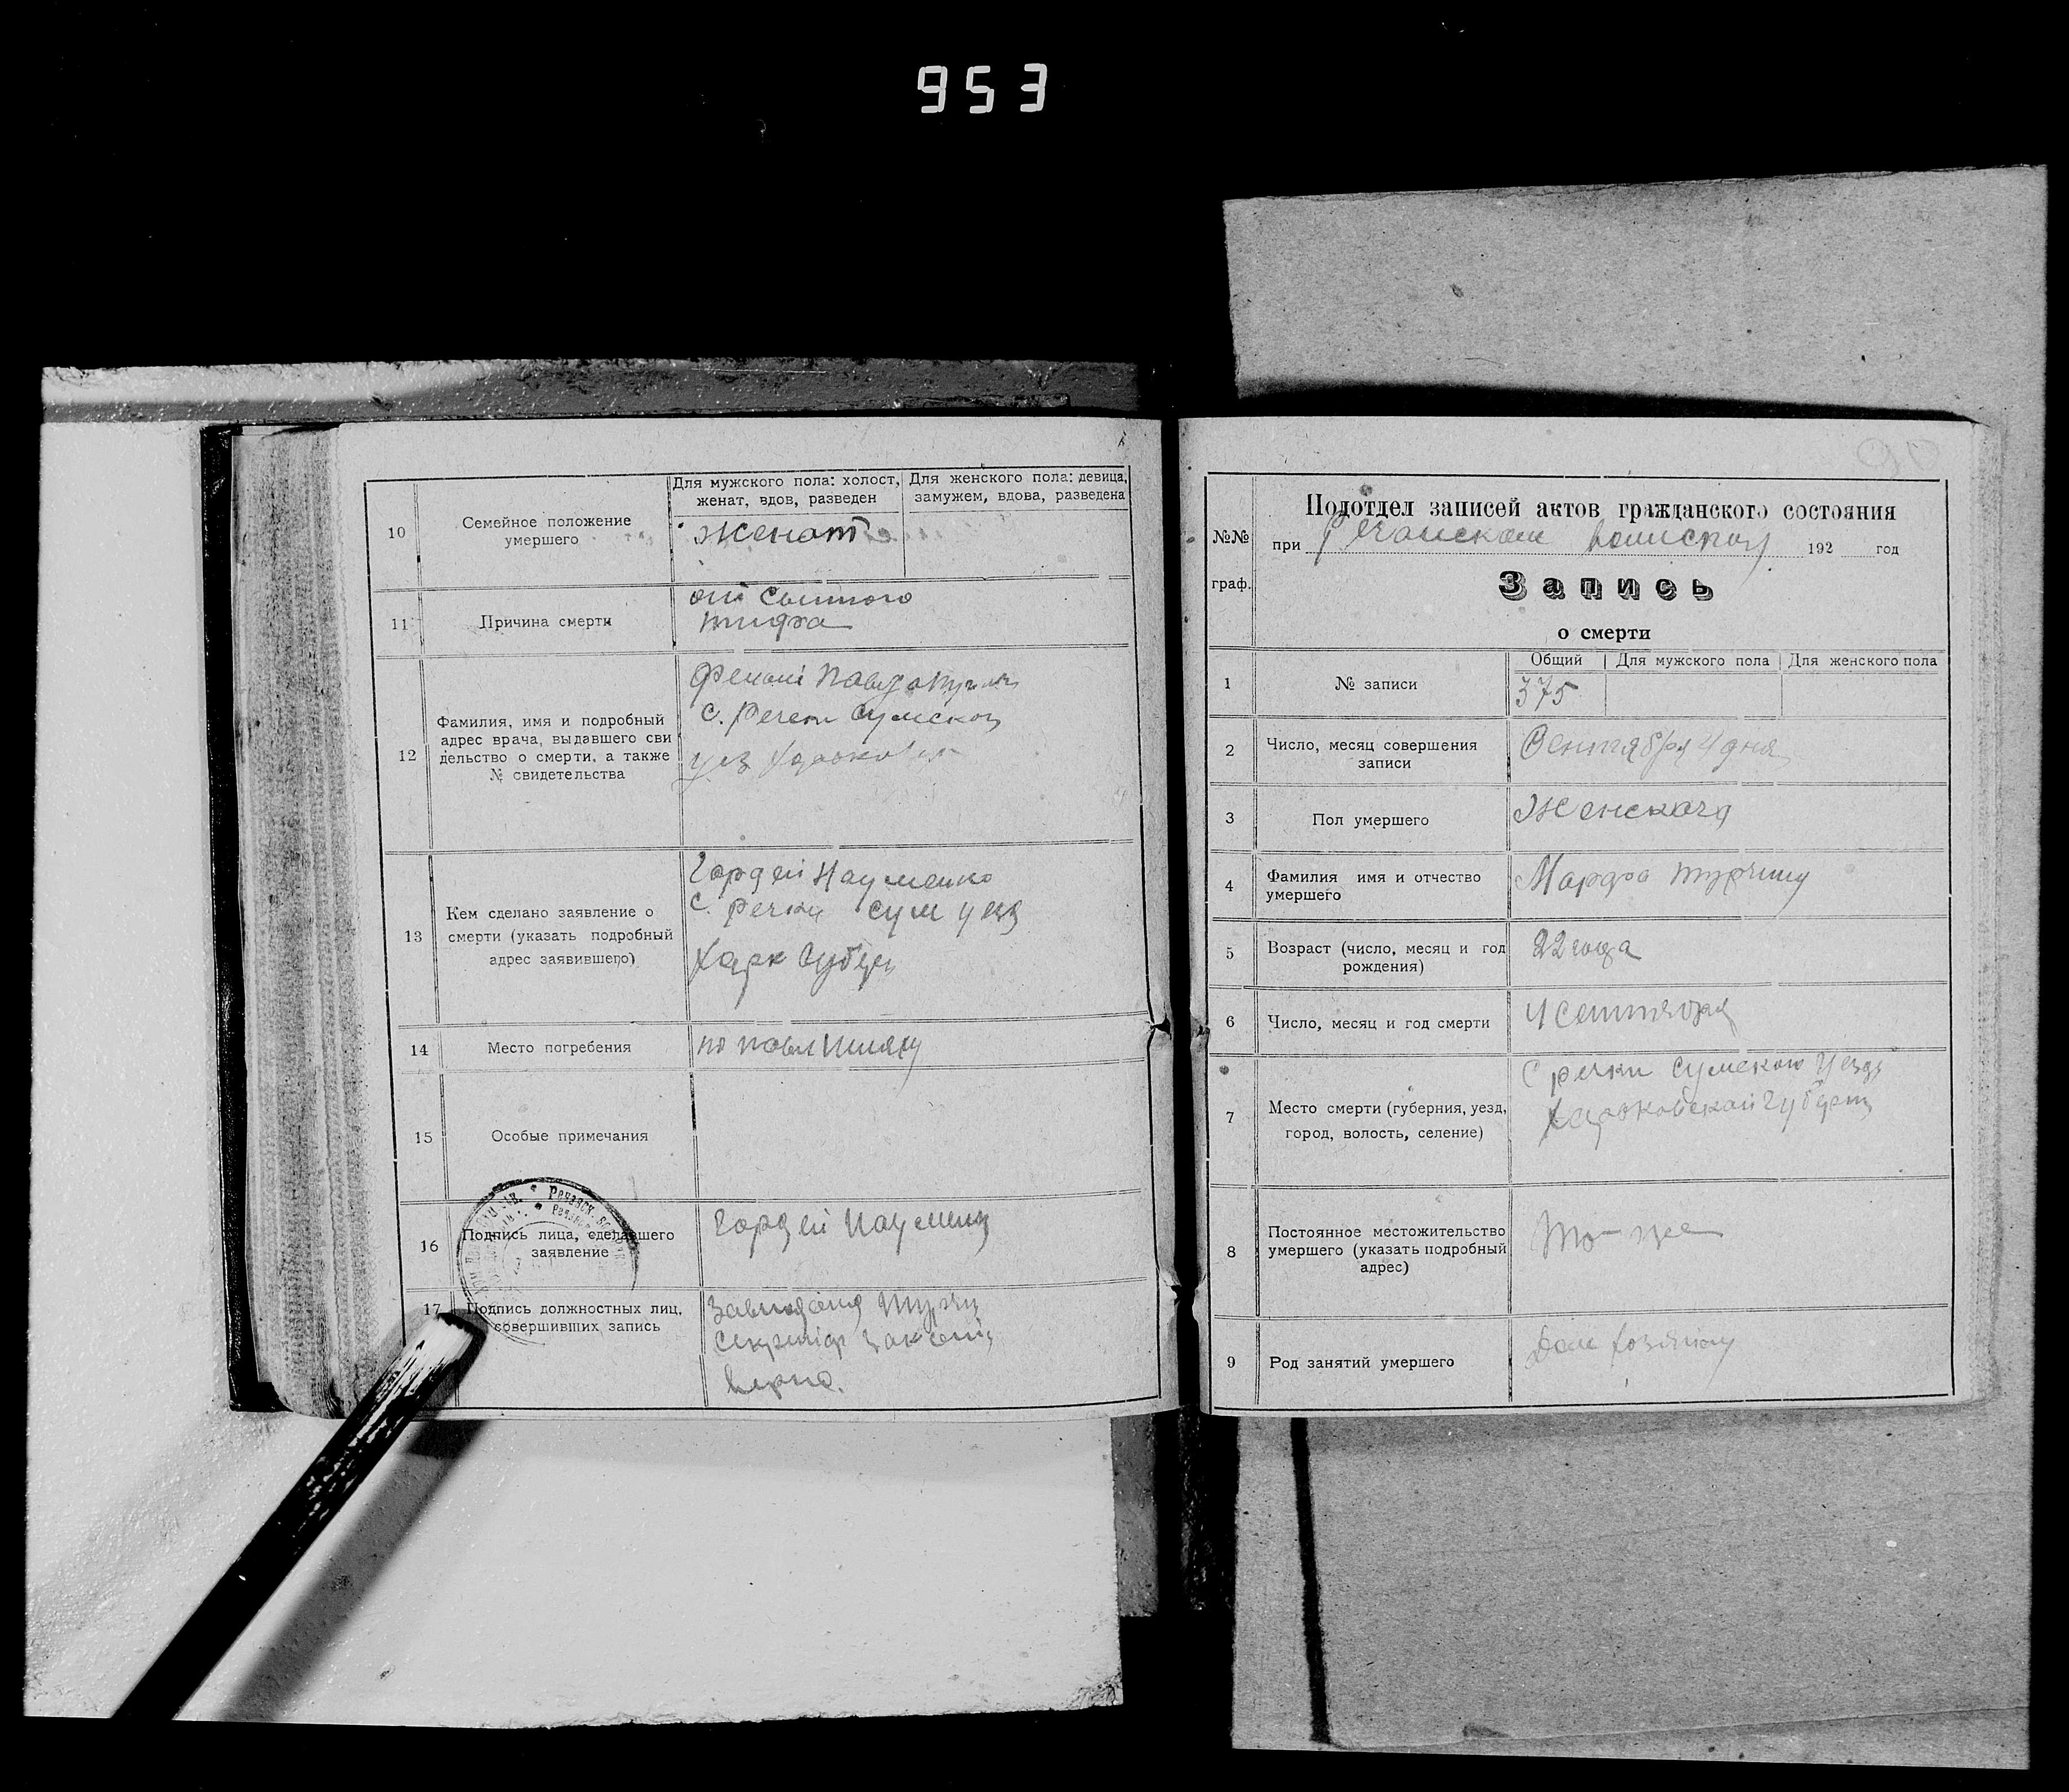 953
10
Семейное положение
умершего
Для мужского пола: холост,
женат, вдов, разведен
Для женского пола: девица,
замужем, вдова, разведена
женат
11
Причина смерти
от сыпного
тифа
12
Фамилия, имя и подробный
адрес врача, выдавшего сви
дельство о смерти, а также
№ свидетельства
с. Речки Сумской
уез
13
Кем сделано заявление о
смерти (указать подробный
адрес заявившего)
Гордей Науменко
с. Речки Сум уезд
Харк Губер
14
Место погребения
15
Особые примечания
16
Подпись лица, сделавшего
заявление
Гордей Науменк
17
Подпись должностных лиц,
совершивших запись
верно.
№№
граф.
Подотдел записей актов гражданского состояния
при 192 год
Запись
о смерти
Общий
Для мужского пола
Для женского пола
1
№ записи
375
2
Число, месяц совершения
записи
Сентября 4 дня
3
Пол умершего
Женскага
4
Фамилия имя и отчество
умершего
Марфа
5
Возраст (число, месяц и год
рождения)
22 года
6
Число, месяц и год смерти
4 Сентября
7
Место смерти (губерния, уезд,
город, волость, селение)
С речки Сумскаго Уезда
Харковскай Губерни
8
Постоянное местожительство
умершего (указать подробный
адрес)
то-же
9
Род занятий умершего